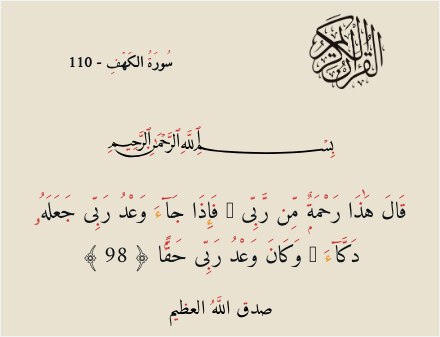 القرآن الكريم
سُورَةُ الكَهْفِ - 110
بِسْمِ اللَّهِ الرَّحْمَٰنِ الرَّحِيمِ
قَالَ هَٰذَا رَحْمَةٌ مِّن رَّبِّى ۖ فَإِذَا جَآءَ وَعْدُ رَبِّى جَعَلَهُۥ
دَكَّآءَ ۖ وَكَانَ وَعْدُ رَبِّى حَقًّا ﴿ 98 ﴾
صدق اللَّهُ العظيم